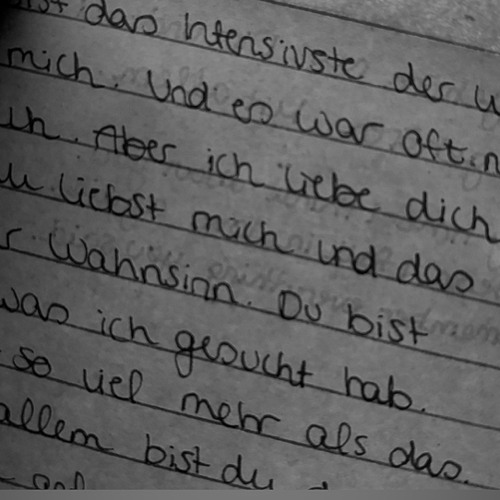 das Intensivste der
mich. Und es war oft
Aber ich liebe dich
liebst mich und das
Wahnsinn. Du bist
was ich gesucht hab.
so viel mehr als das.
allem bist du